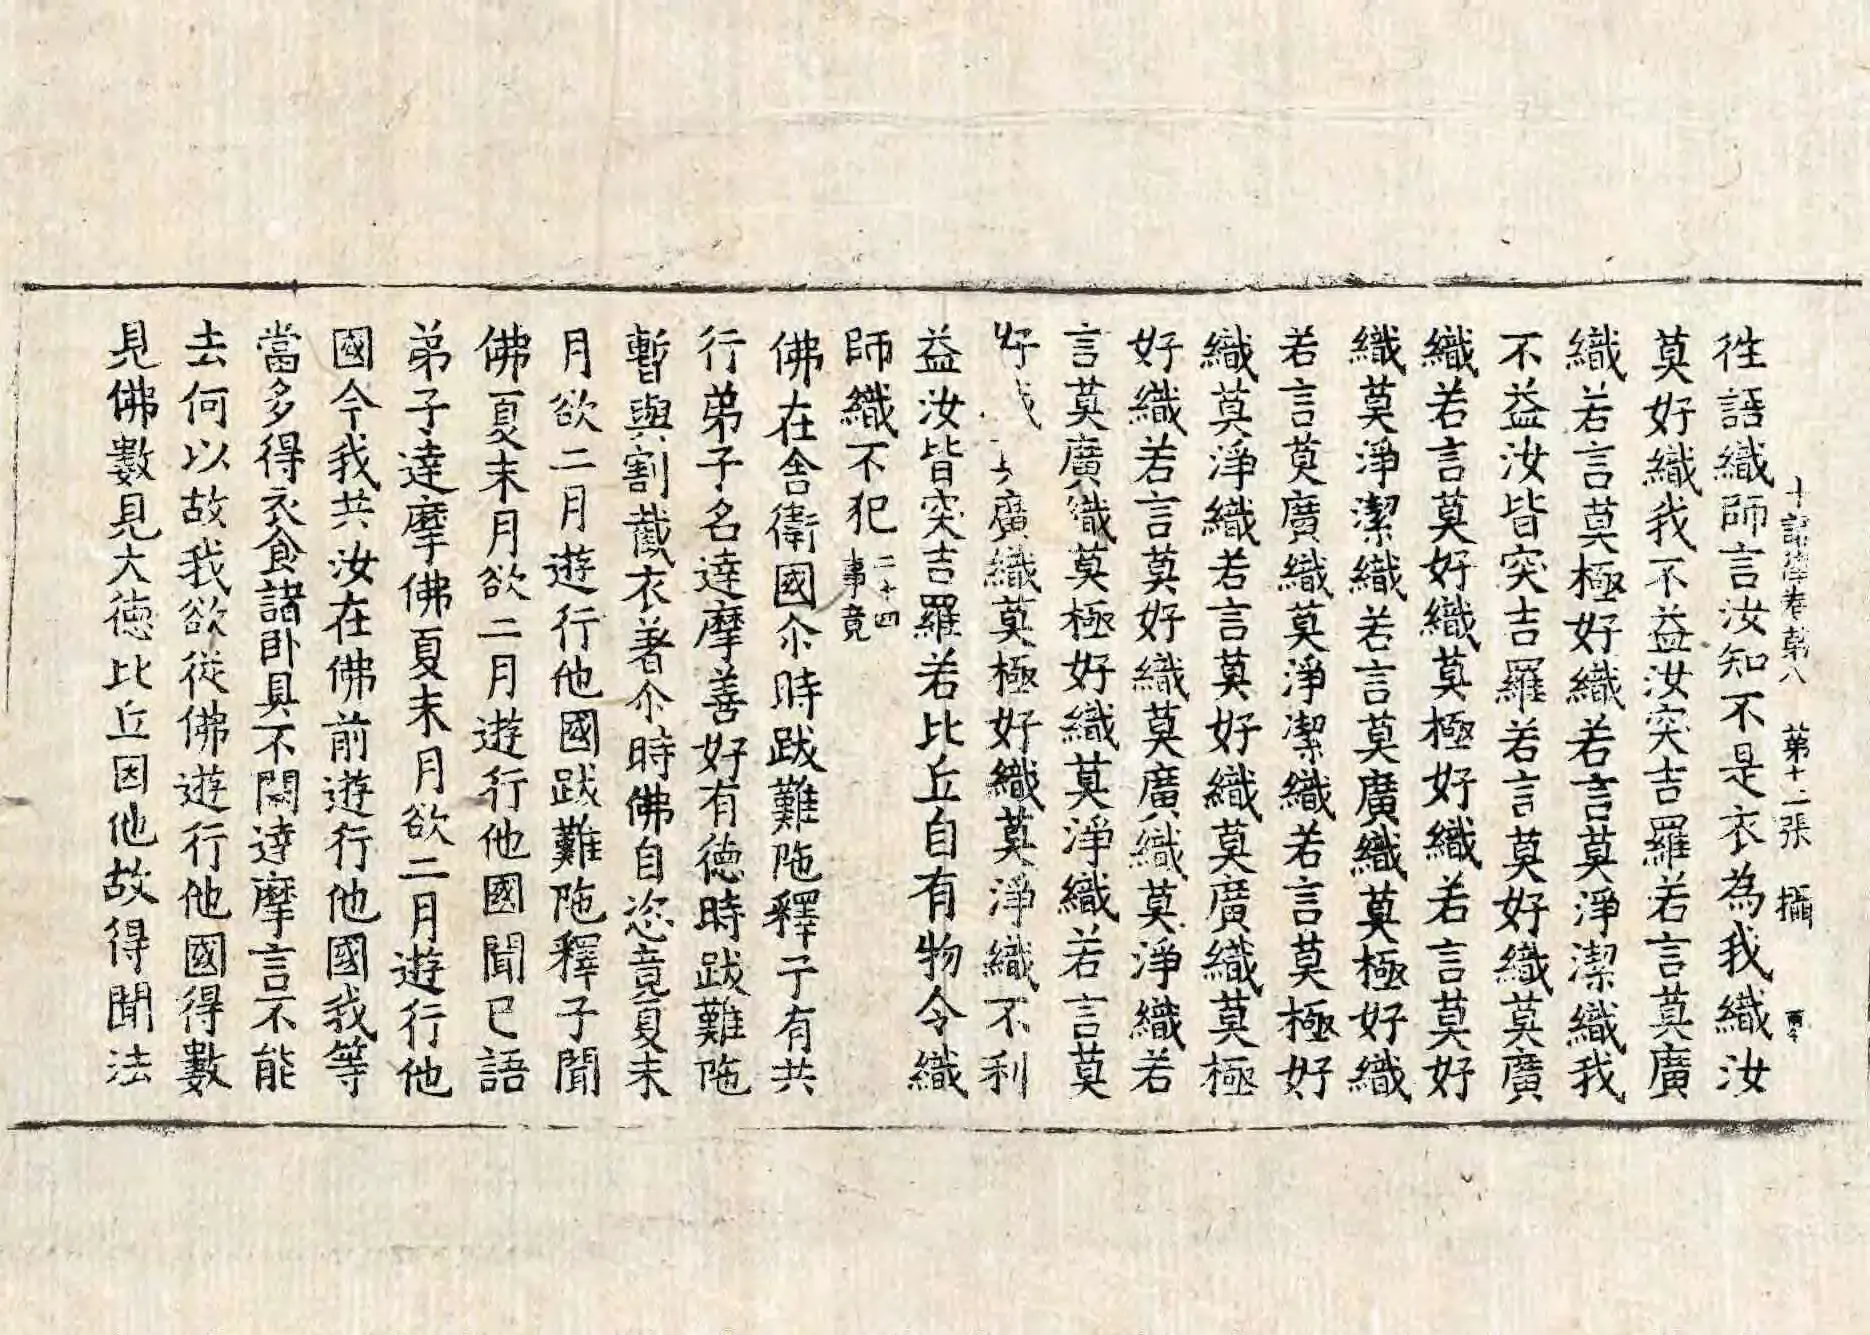 十誦律卷第八　第十二張　攝
徃語織師言汝知不是衣為我織汝
莫好織我不益汝突吉羅若言莫廣
織若言莫極好織若言莫淨潔織我
不益汝皆突吉羅若言莫好織莫廣
織若言莫好織莫極好織若言莫好
織莫淨潔織若言莫廣織莫極好織
若言莫廣織莫淨潔織若言莫極好
織莫淨織若言莫好織莫廣織莫極
好織若言莫好織莫廣織莫淨織若
言莫廣織莫極好織莫淨織若言莫
好織廣織莫極好織莫淨織不利
益汝皆突吉羅若比丘自有物令織
師織不犯二十四事竟
佛在舍衛國尒時跋難陁釋子有共
行弟子名達摩善好有德時跋難陁
暫與割截衣著尒時佛自恣竟夏末
月欲二月遊行他國跋難陁釋子聞
佛夏末月欲二月遊行他國聞已語
弟子達摩佛夏末月欲二月遊行他
國今我共汝在佛前遊行他國我等
當多得衣食諸卧具不闕達摩言不能
去何以故我欲從佛遊行他國得數
見佛數見大德比丘因他故得聞法